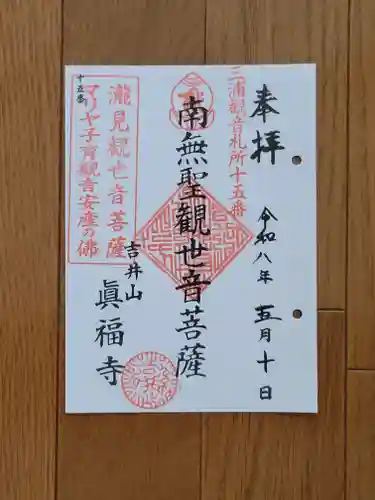 奉拝
令和八年五月十日
三浦観音札所十五番
南無聖観世音菩薩
吉井山
眞福寺
十五番
瀧見観世音菩薩
マリヤ子育観音安座の佛